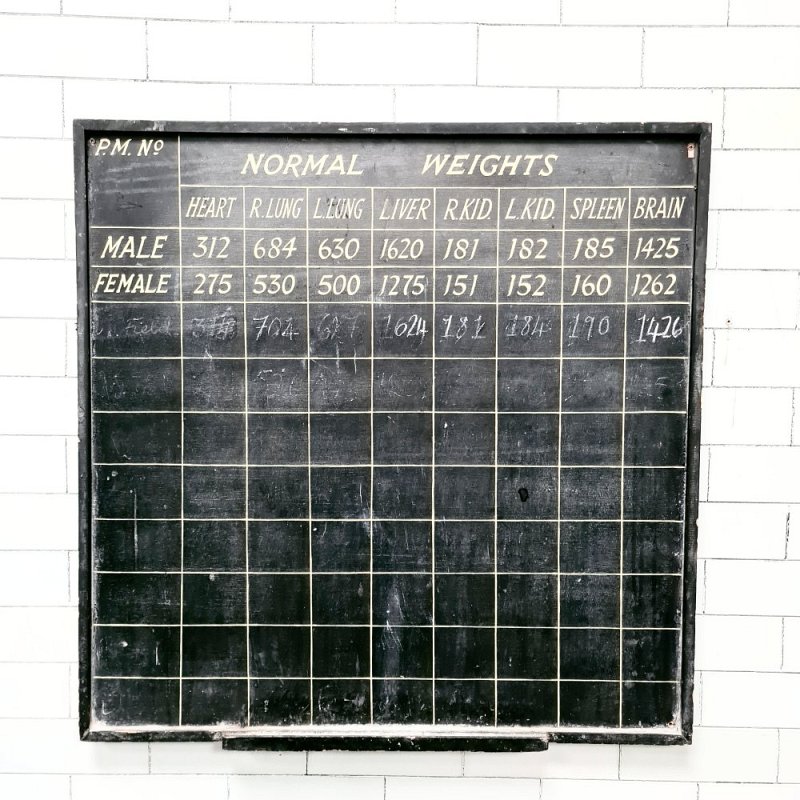 P.M. Nº
NORMAL WEIGHTS
HEART R.LUNG L.LUNG LIVER R.KID. L.KID. SPLEEN BRAIN
MALE 312 684 630 1620 181 182 185 1425
FEMALE 275 530 500 1275 151 152 160 1262
704 1624 181 184 190 1426